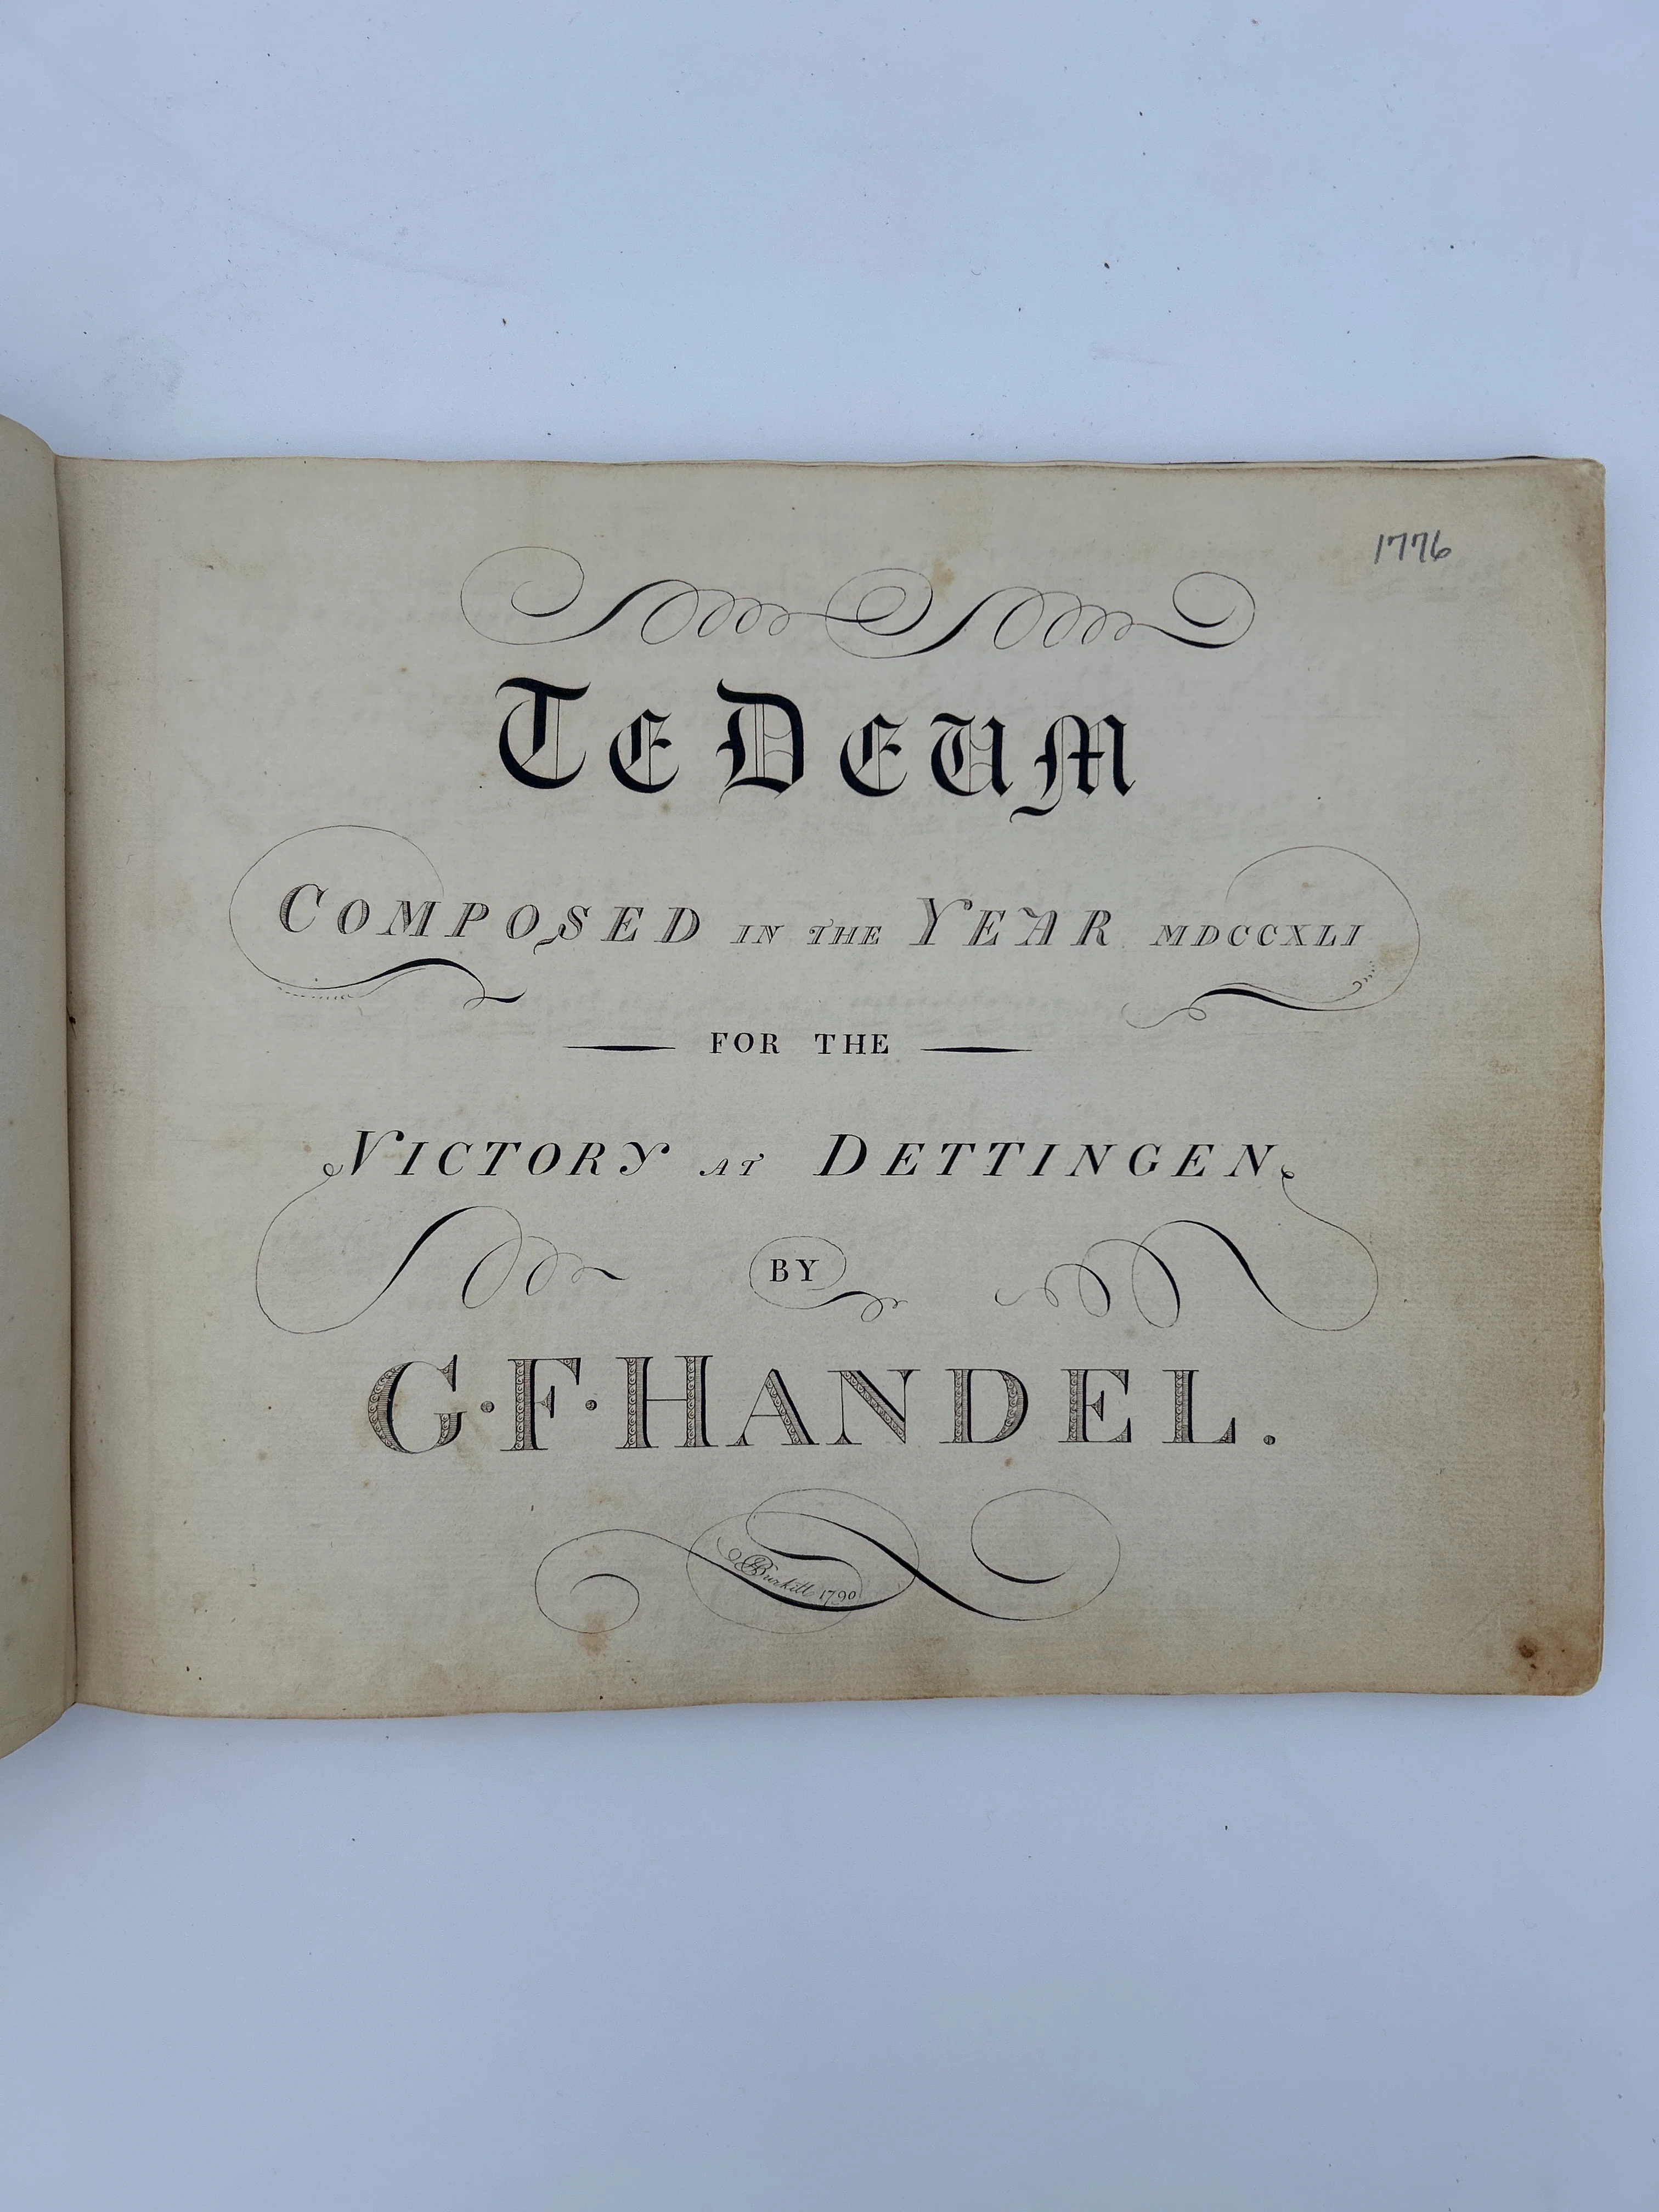 1776
TE DEUM
COMPOSED IN THE YEAR MDCCXLI
FOR THE
VICTORY AT DETTINGEN.
BY
G·F·HANDEL.
Burkitt 1790